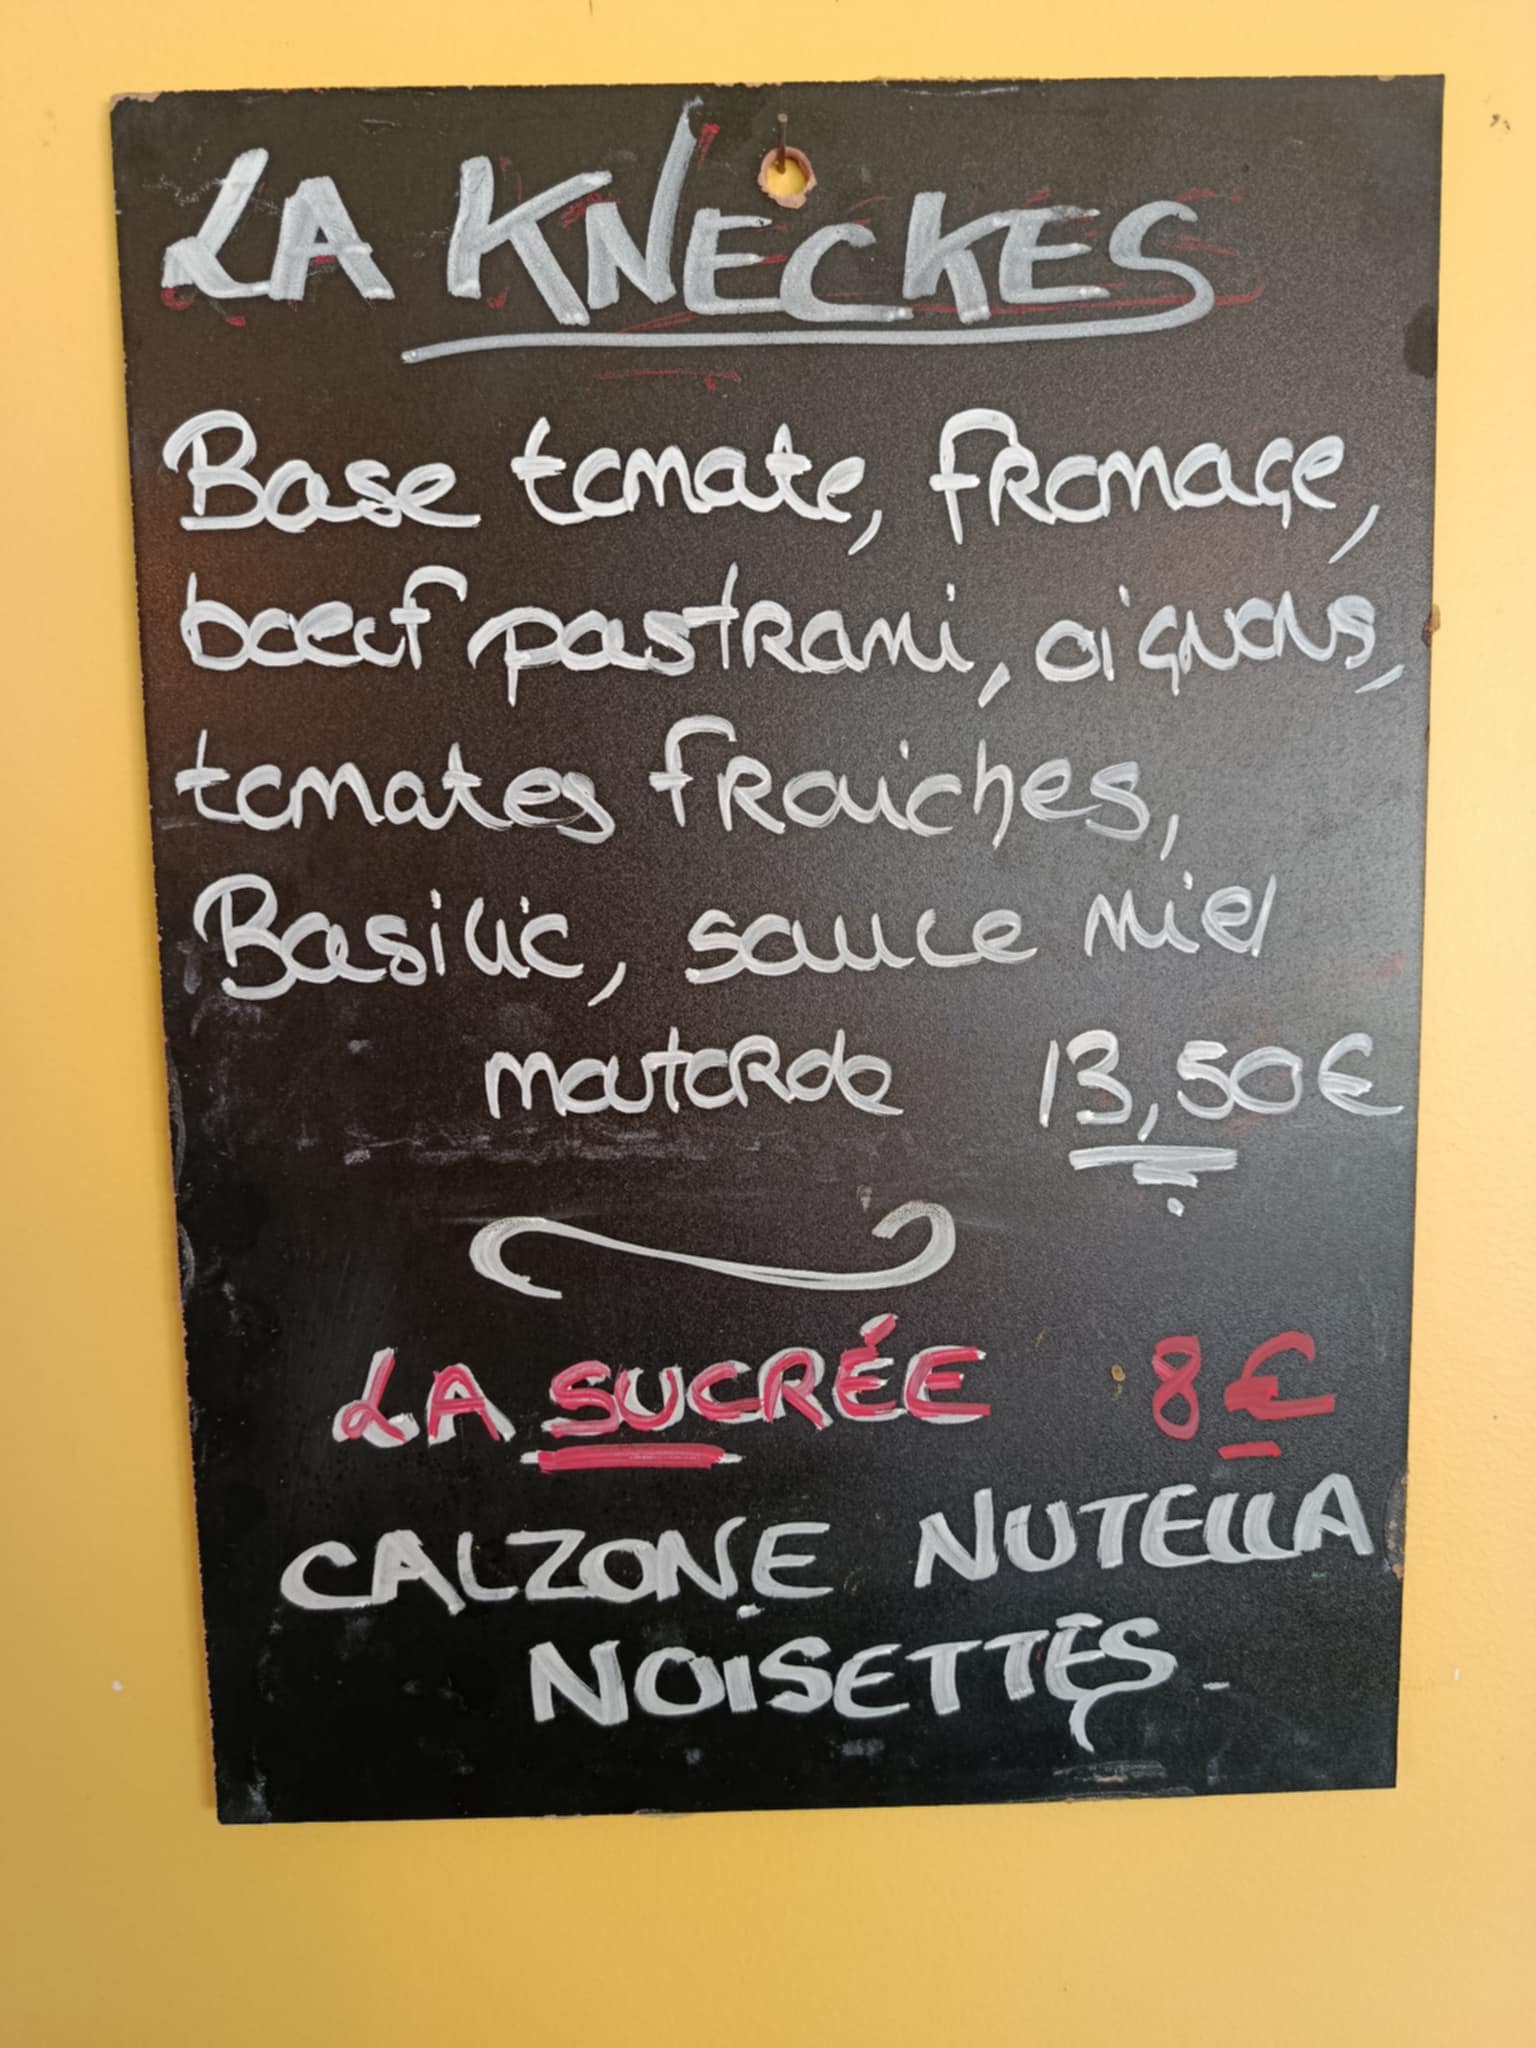 LA KNECKES
Base tomate, fromage,
boeuf pastrami, oignons,
tomates fraiches,
Basilic, sauce miel
moutarde 13,50€
LA SUCRÉE 8€
CALZONE NUTELLA
NOISETTES